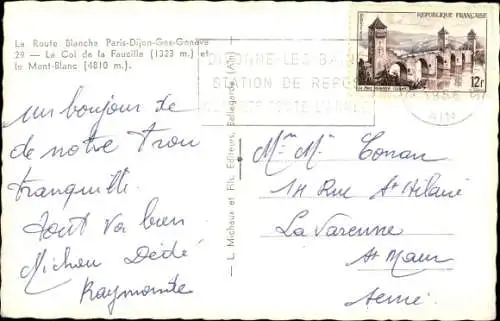 La Route Blanche Paris-Dijon-Gex-Genève
29 — Le Col de la Faucille (1323 m.) et
le Mont-Blanc (4810 m.).
DIVONNE-LES BAINS
STATION DE REPOS
OUVERTE TOUTE L'ANNÉE
REPUBLIQUE FRANÇAISE
12F
AIN
un bonjour de
de notre trou
tranquille.
tout va bien
Michou Dédé
Raymonde
L. Michaux et Fils, Editeurs, Bellegarde (Ain)
Mr M. Conan
14 Rue St Hilaire
La Varenne
St Maur
Seine